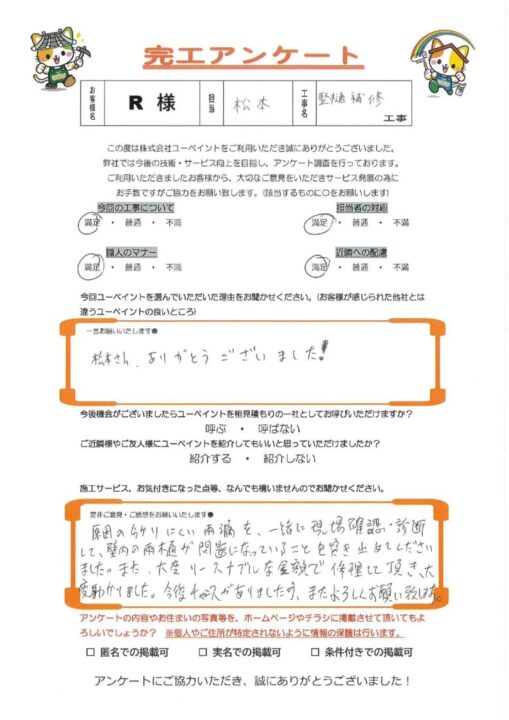 完工アンケート
お客様名 R 様 担当 松本 工事名 竪樋補修 工事
この度は株式会社ユーペイントをご利用いただき誠にありがとうございました。
弊社では今後の技術・サービス向上を目指し、アンケート調査を行っております。
ご利用いただきましたお客様から、大切なご意見をいただきサービス発展の為に
お手数ですがご協力をお願い致します。(該当するものに○をお願いします)
今回の工事について 担当者の対応
満足 ・ 普通 ・ 不満 満足 ・ 普通 ・ 不満
職人のマナー 近隣への配慮
満足 ・ 普通 ・ 不満 満足 ・ 普通 ・ 不満
今回ユーペイントを選んでいただいた理由をお聞かせください。(お客様が感じられた他社とは
違うユーペイントの良いところ)
一言お願いいたします●
松本さん、ありがとうございました!
今後機会がございましたらユーペイントを相見積もりの一社としてお呼びいただけますか?
呼ぶ ・ 呼ばない
ご近隣様やご友人様にユーペイントを紹介してもいいと思っていただけましたか?
紹介する ・ 紹介しない
施工サービス、お気付きになった点等、なんでも構いませんのでお聞かせください。
是非ご意見・ご感想をお願いいたします●
原因の分かりにくい雨漏を、一緒に現場確認・診断
して、壁内の雨樋が問題になっていることを突き止めてください
ました。また、大変リーズナブルな金額で修理して頂き、大
変助かりました。今後チャンスがありましたら、またよろしくお願い致します。
アンケートの内容やお住まいの写真等を、ホームページやチラシに掲載させて頂いてもよ
ろしいでしょうか? ※個人やご住所が特定されないように情報の保護は行います。
□ 匿名での掲載可 □ 実名での掲載可 □ 条件付きでの掲載可
アンケートにご協力いただき、誠にありがとうございました!